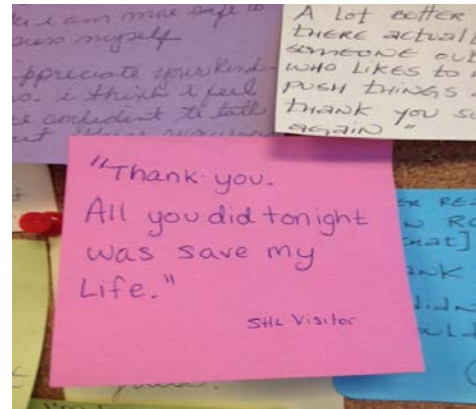 i am more safe to
myself
appreciate your kind-
i think i feel
confident to talk
A lot better
there actually
someone out
who likes to
push things
thank you so
again "
"Thank you.
All you did tonight
was save my
Life."
SHL Visitor